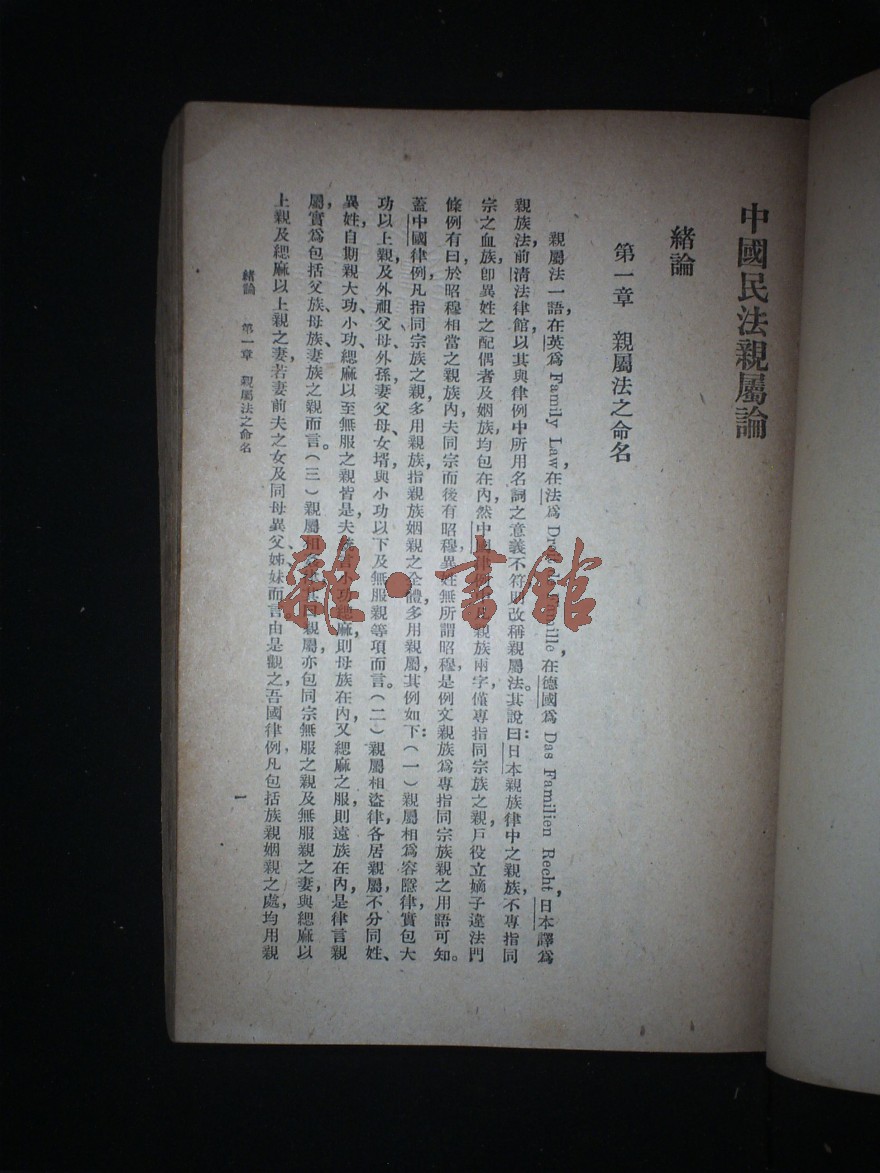 中國民法親屬論
緒論
第一章 親屬法之命名
親屬法一語，在英爲 Family Law，在法爲 Famille，在德國爲 Das Familien Recht，日本譯爲
親族法，前清法律館以其與律例中所用名詞之意義不符，則改稱親屬法。其說曰：日本親族律中之親族，不專指同
宗之血族，卽異姓之配偶者及姻族，均包在內，然中國律例，親族兩字，僅專指同宗族之親，戶役立嫡子違法門
條例有曰，於昭穆相當之親族內，夫同宗而後有昭穆，異姓無所謂昭穆，是例文親族爲專指同宗族親之用語可知。
蓋中國律例，凡指同宗族之親，多用親族，指親族姻親之全體，多用親屬，其例如下：（一）親屬相爲容隱律，實包大
功以上親，及外祖父母、外孫、妻父母、女壻，與小功以下及無服親等項而言。（二）親屬相盜律，各居親屬，不分同姓、
異姓，自期親、大功、小功、緦麻以至無服之親皆是，夫小功緦麻，則母族在內，又緦麻之服，則遠族在內，是律言親
屬，實爲包括父族、母族、妻族之親而言。（三）親屬相，其曰親屬，亦包同宗無服之親及無服親之妻，與緦麻以
上親及緦麻以上親之妻，若妻前夫之女及同母異父姊妹而言。由是觀之，吾國律例，凡包括族親姻親之處，均用親
緒論 第一章 親屬法之命名
一
雜·書館